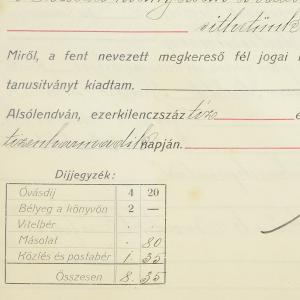 vithetünk
Miről, a fent nevezett megkereső fél jogai
tanusitványt kiadtam.
Alsólendván, ezerkilenczszáz tíz
tizenharmadik napján.
Díjjegyzék:
Óvásdíj 4 20
Bélyeg a könyvön 2 —
Vitelbér . .
Másolat . 80
Közlés és postabér 1. 35
Összesen 8. 35